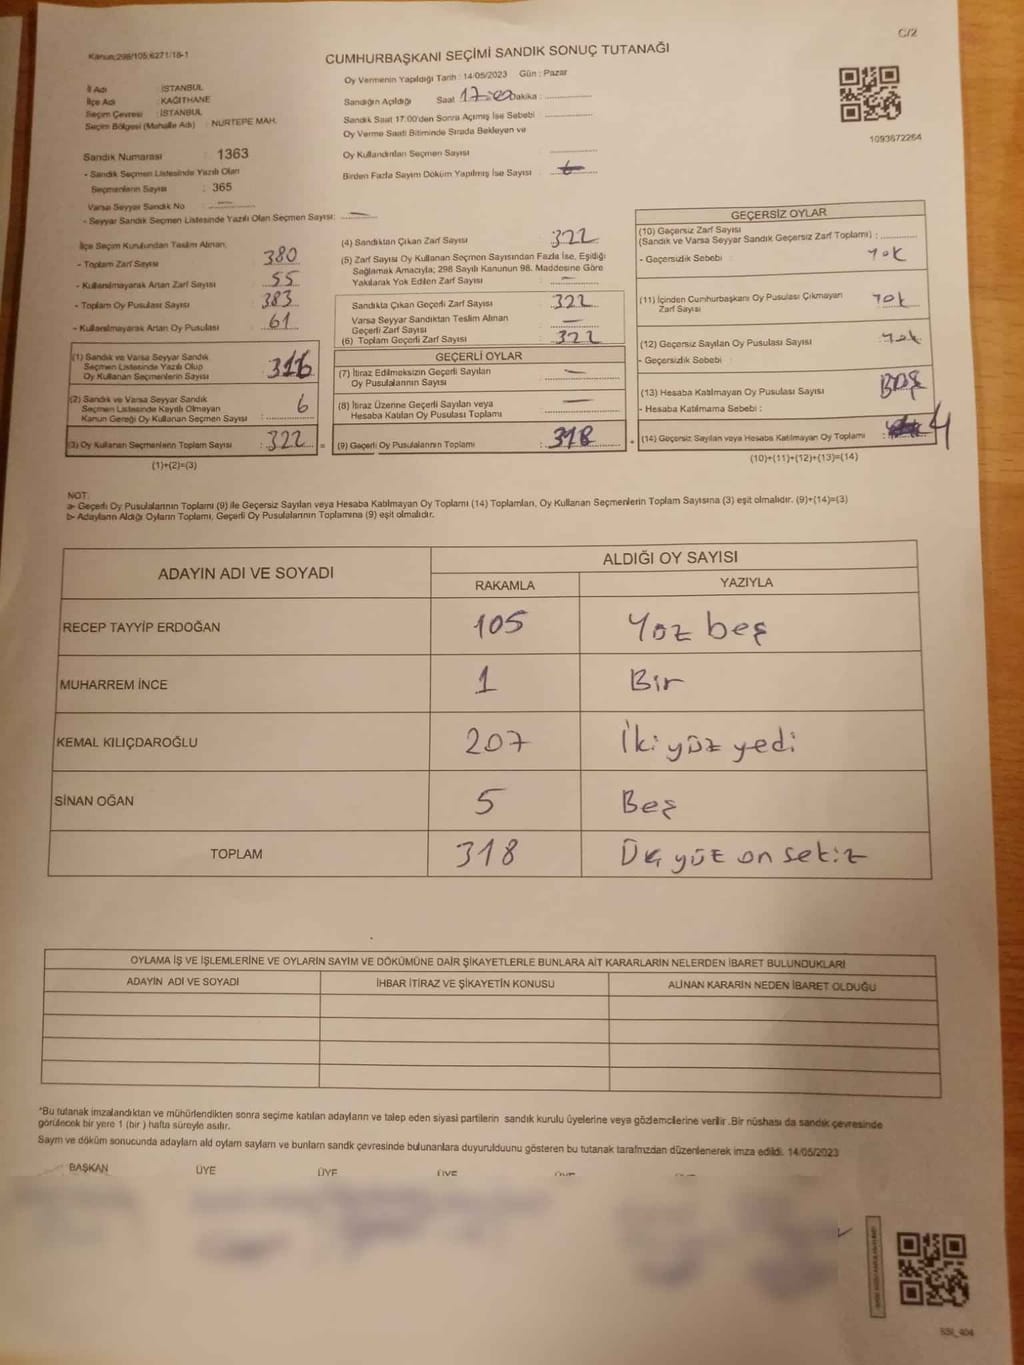 Kanun:298/105;6271/18-1
C/2
CUMHURBAŞKANI SEÇİMİ SANDIK SONUÇ TUTANAĞI
İl Adı : İSTANBUL
İlçe Adı : KAĞITHANE
Seçim Çevresi : İSTANBUL
Seçim Bölgesi (Mahalle Adı) : NURTEPE MAH.
Sandık Numarası : 1363
- Sandık Seçmen Listesinde Yazılı Olan
Seçmenlerin Sayısı : 365
Varsa Seyyar Sandık No :
- Seyyar Sandık Seçmen Listesinde Yazılı Olan Seçmen Sayısı:
Oy Vermenin Yapıldığı Tarih : 14/05/2023 Gün : Pazar
Sandığın Açıldığı Saat 17:00 Dakika :
Sandık Saat 17:00'den Sonra Açımış İse Sebebi
Oy Verme Saati Bitiminde Sırada Bekleyen ve
Oy Kullandırılan Seçmen Sayısı
Birden Fazla Sayım Döküm Yapılmış İse Sayısı
1093672264
İlçe Seçim Kurulundan Teslim Alınan;
- Toplam Zarf Sayısı : 380
- Kullanılmayarak Artan Zarf Sayısı : 55
- Toplam Oy Pusulası Sayısı : 383
- Kullanılmayarak Artan Oy Pusulası : 61
(1) Sandık ve Varsa Seyyar Sandık
Seçmen Listesinde Yazılı Olup
Oy Kullanan Seçmenlerin Sayısı : 316
(2) Sandık ve Varsa Seyyar Sandık
Seçmen Listesinde Kayıtlı Olmayan
Kanun Gereği Oy Kullanan Seçmen Sayısı : 6
(3) Oy Kullanan Seçmenlerin Toplam Sayısı : 322 =
(1)+(2)=(3)
(4) Sandıktan Çıkan Zarf Sayısı 322
(5) Zarf Sayısı Oy Kullanan Seçmen Sayısından Fazla İse, Eşidiği
Sağlamak Amacıyla; 298 Sayılı Kanunun 98. Maddesine Göre
Yakılarak Yok Edilen Zarf Sayısı
Sandıkta Çıkan Geçerli Zarf Sayısı 322
Varsa Seyyar Sandıktan Teslim Alınan
Geçerli Zarf Sayısı
(6) Toplam Geçerli Zarf Sayısı 322
GEÇERLİ OYLAR
(7) İtiraz Edilmeksizin Geçerli Sayılan
Oy Pusulalarının Sayısı
(8) İtiraz Üzerine Geçerli Sayılan veya
Hesaba Katılan Oy Pusulası Toplamı
(9) Geçerli Oy Pusulalarının Toplamı : 318 +
GEÇERSİZ OYLAR
(10) Geçersiz Zarf Sayısı
(Sandık ve Varsa Seyyar Sandık Geçersiz Zarf Toplamı) :
- Geçersizlik Sebebi : Yok
(11) İçinden Cumhurbaşkanı Oy Pusulası Çıkmayan
Zarf Sayısı Yok
(12) Geçersiz Sayılan Oy Pusulası Sayısı Yok
- Geçersizlik Sebebi :
(13) Hesaba Katılmayan Oy Pusulası Sayısı Boş
- Hesaba Katılmama Sebebi :
(14) Geçersiz Sayılan veya Hesaba Katılmayan Oy Toplamı : 4
(10)+(11)+(12)+(13)=(14)
NOT:
a- Geçerli Oy Pusulalarının Toplamı (9) ile Geçersiz Sayılan veya Hesaba Katılmayan Oy Toplamı (14) Toplamları, Oy Kullanan Seçmenlerin Toplam Sayısına (3) eşit olmalıdır. (9)+(14)=(3)
b- Adayların Aldığı Oyların Toplamı, Geçerli Oy Pusulalarının Toplamına (9) eşit olmalıdır.
ADAYIN ADI VE SOYADI
ALDIĞI OY SAYISI
RAKAMLA YAZIYLA
RECEP TAYYİP ERDOĞAN 105 Yüz beş
MUHARREM İNCE 1 Bir
KEMAL KILIÇDAROĞLU 207 İki yüz yedi
SİNAN OĞAN 5 Beş
TOPLAM 318 Üç yüz on sekiz
OYLAMA İŞ VE İŞLEMLERİNE VE OYLARIN SAYIM VE DÖKÜMÜNE DAİR ŞİKAYETLERLE BUNLARA AİT KARARLARIN NELERDEN İBARET BULUNDUKLARI
ADAYIN ADI VE SOYADI İHBAR İTİRAZ VE ŞİKAYETİN KONUSU ALINAN KARARIN NEDEN İBARET OLDUĞU
*Bu tutanak imzalandıktan ve mühürlendikten sonra seçime katılan adayların ve talep eden siyasi partilerin sandık kurulu üyelerine veya gözlemcilerine verilir. Bir nüshası da sandık çevresinde
görülecek bir yere 1 (bir) hafta süreyle asılır.
Sayım ve döküm sonucunda adayların ald oyların sayların ve bunların sandk çevresinde bulunanlara duyurulduunu gösteren bu tutanak tarafmzdan düzenlenerek imza edildi. 14/05/2023
BAŞKAN ÜYE ÜYE ÜYE ÜYE
SSI_404